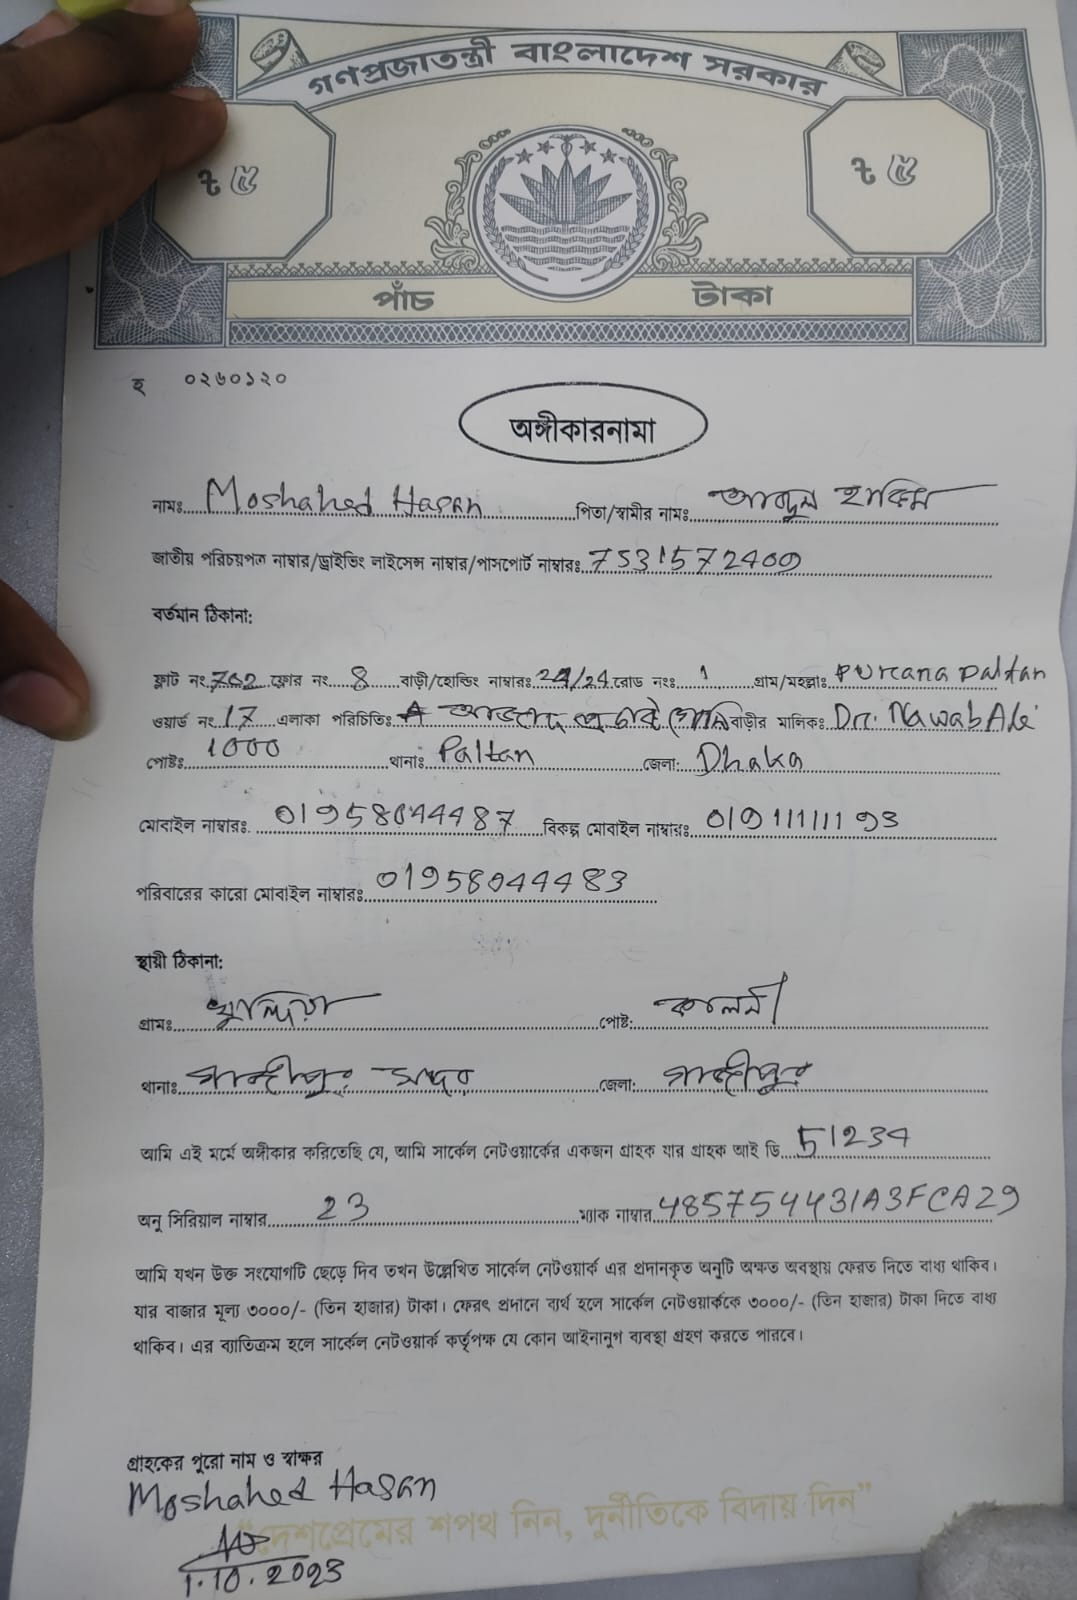 গণপ্রজাতন্ত্রী বাংলাদেশ সরকার
৳ ৫ ৳ ৫
পাঁচ টাকা
হ ০২৬০১২০
অঙ্গীকারনামা
নামঃ Moshahed Hasan পিতা/স্বামীর নামঃ আব্দুল হাকিম
জাতীয় পরিচয়পত্র নাম্বার/ড্রাইভিং লাইসেন্স নাম্বার/পাসপোর্ট নাম্বারঃ 7531572400
বর্তমান ঠিকানা:
ফ্লাট নং 702 ফ্লোর নং 8 বাড়ী/হোল্ডিং নাম্বারঃ 24/24 রোড নংঃ 1 গ্রাম/মহল্লাঃ Purana Paltan
ওয়ার্ড নং 17 এলাকা পরিচিতিঃ বাড়ীর মালিকঃ Dr. Nawab Ali
পোষ্টঃ 1000 থানাঃ Paltan জেলা: Dhaka
মোবাইল নাম্বারঃ 01958044487 বিকল্প মোবাইল নাম্বারঃ 01911111193
পরিবারের কারো মোবাইল নাম্বারঃ 01958044483
স্থায়ী ঠিকানা:
গ্রামঃ পোষ্ট: কালনী
থানাঃ গাজীপুর সদর জেলা: গাজীপুর
আমি এই মর্মে অঙ্গীকার করিতেছি যে, আমি সার্কেল নেটওয়ার্কের একজন গ্রাহক যার গ্রাহক আই ডি 51234
অনু সিরিয়াল নাম্বার 23 ম্যাক নাম্বার 485754431A3FCA29
আমি যখন উক্ত সংযোগটি ছেড়ে দিব তখন উল্লেখিত সার্কেল নেটওয়ার্ক এর প্রদানকৃত অনুটি অক্ষত অবস্থায় ফেরত দিতে বাধ্য থাকিব।
যার বাজার মূল্য ৩০০০/- (তিন হাজার) টাকা। ফেরৎ প্রদানে ব্যর্থ হলে সার্কেল নেটওয়ার্ককে ৩০০০/- (তিন হাজার) টাকা দিতে বাধ্য
থাকিব। এর ব্যাতিক্রম হলে সার্কেল নেটওয়ার্ক কর্তৃপক্ষ যে কোন আইনানুগ ব্যবস্থা গ্রহণ করতে পারবে।
গ্রাহকের পুরো নাম ও স্বাক্ষর
Moshahed Hasan
"দেশপ্রেমের শপথ নিন, দুর্নীতিকে বিদায় দিন"
1.10.2023